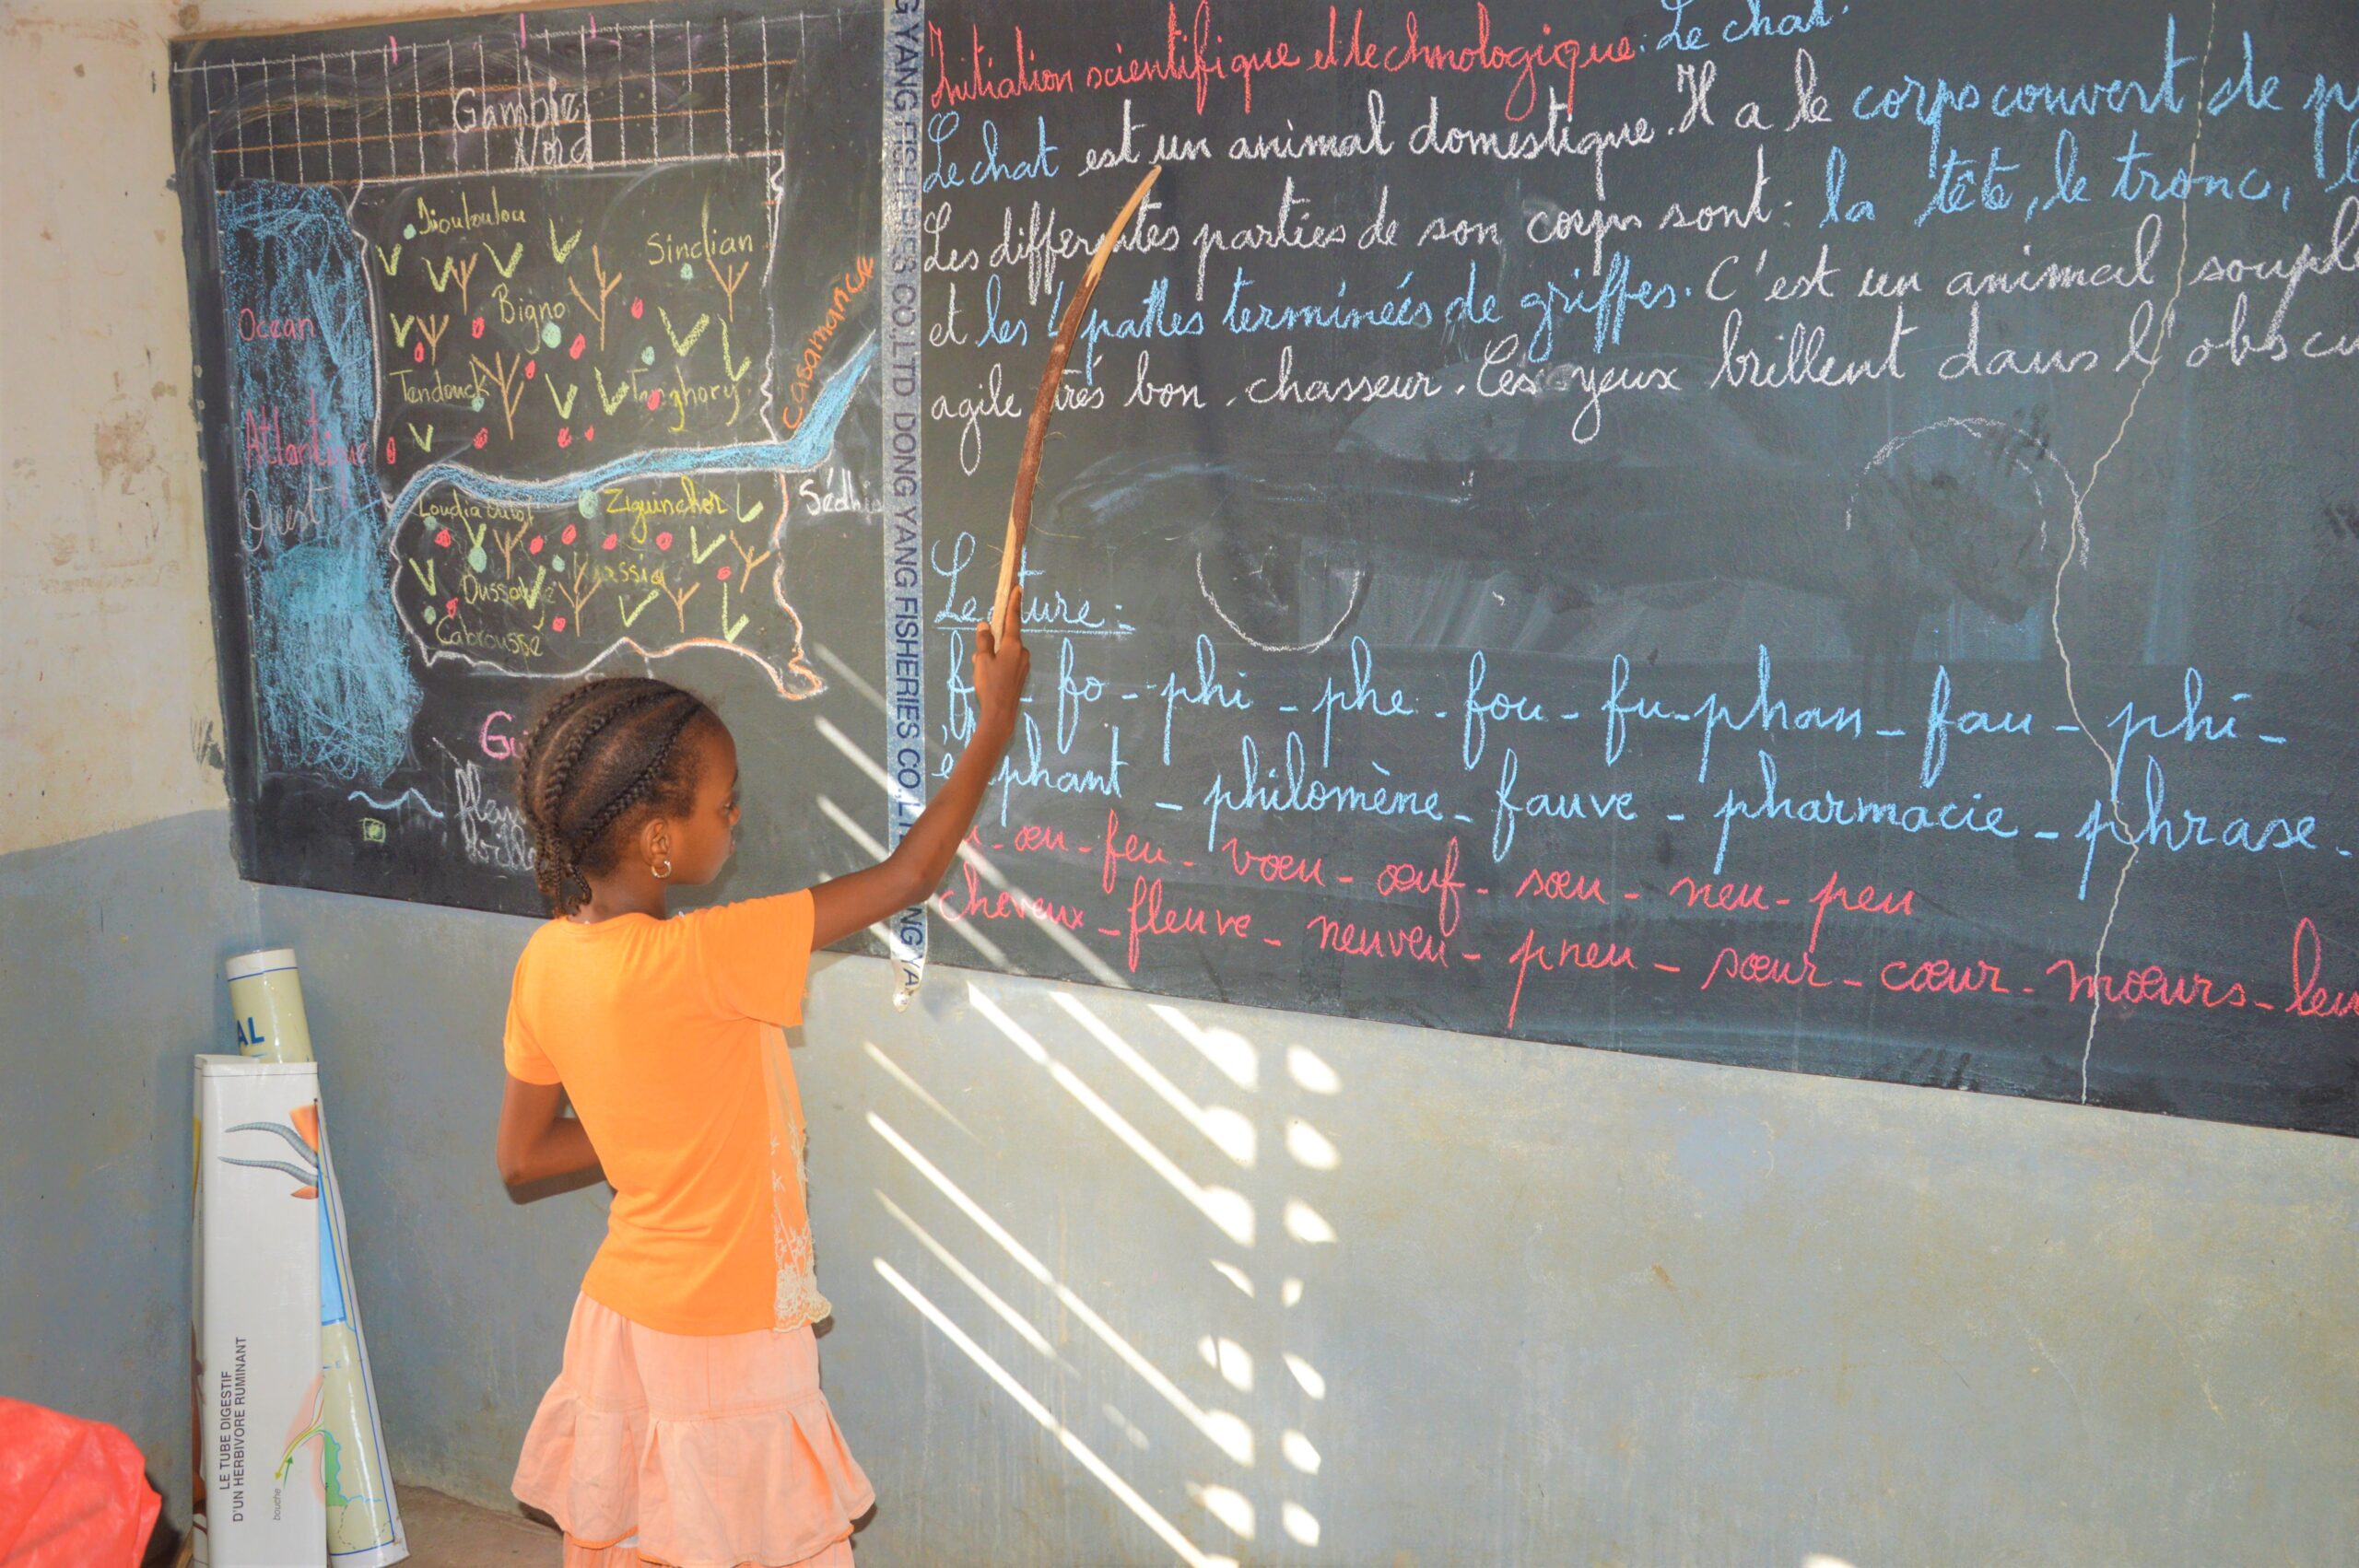 Gambie
Nord
Dioulolou
Sindian
Bigno
Ocean
Tendouck
Tanghory
Casamance
Atlantique
Ouest
Ziguinchor
Sédhio
Loudia Ouolof
Oussouye
Cabrousse
G YANG FISHERIES CO.,LTD DONG YANG FISHERIES CO.,LT
NG YA
Initiation scientifique et technologique: Le chat.
Le chat est un animal domestique. Il a le corps couvert de
Les différentes parties de son corps sont: la tête, le tronc,
et les 4 pattes terminées de griffes. C'est un animal souple
agile très bon chasseur. Ces yeux brillent dans l'obscu
Lecture:
fo - phi - phe - fou - fu - phan - fau - phi -
phant - philomène - fauve - pharmacie - phrase -
œu - feu - vœu - œuf - sœu - neu - peu
cheveux - fleuve - neuveu - pneu - sœur - cœur - mœurs - leu
AL
LE TUBE DIGESTIF
D'UN HERBIVORE RUMINANT
bouche